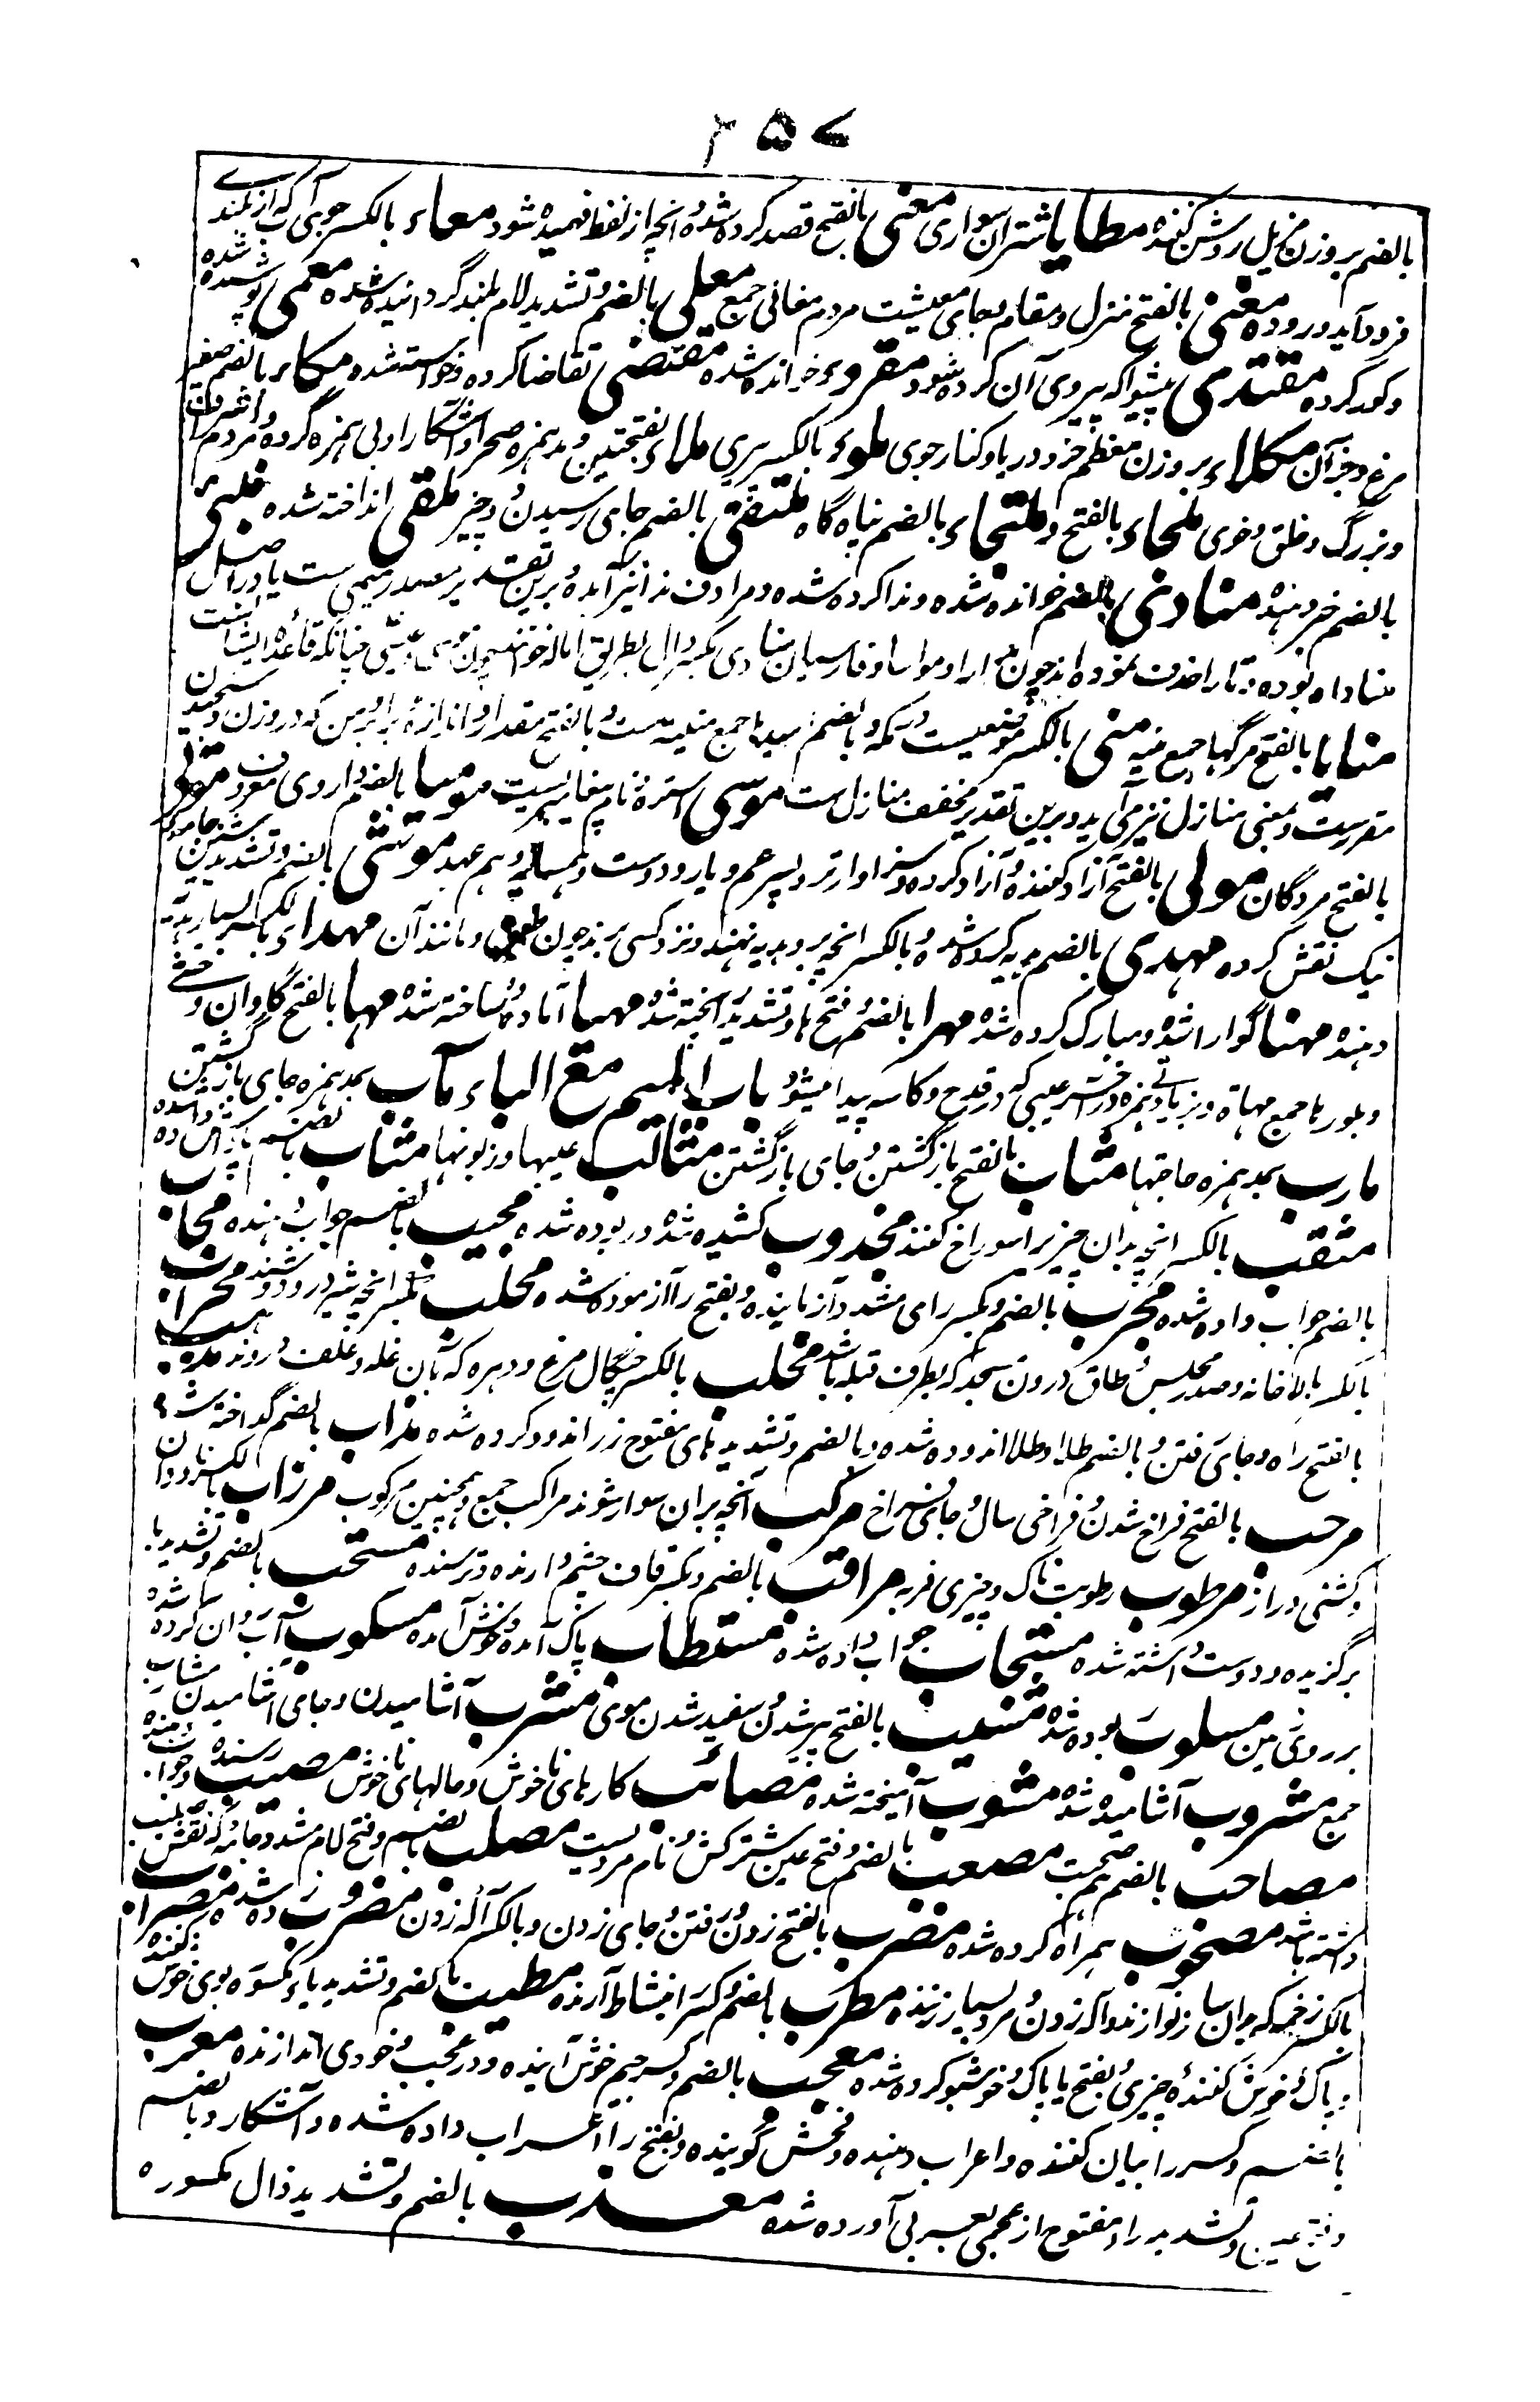 ۲۵۷
بالضم بر وزن مزیل روشن کننده مطایا شتران سواری معنی بالفتح قصد کرده شده و انچه از لفظ فهمیده شود معاء بالکسر جوی آب که از بلندی
فرود آید در رود مغنی بالفتح منزل و مقام و بجای معیشت مردم مغانی جمع معلی بالضم و تشدید لام بلند گردانیده شده معمی پوشیده شده
و کور کرده مقتدی پیشوا که پیروی آن کرده شود مقروء خوانده شده مقتضی تقاضا کرده و خواسته شده مکاء بالضم صفیر
مرغ و جز آن مکلاء بر وزن معظم خرد دریا و کنار جوی ملوء بالکسر پری ملاء بفتحتین و مد همزه صحرا و آشکارا و بی همزه گروه مردم و اشراف
و بزرگ و خلق و خوی ملجاء بالفتح و ملتجاء بالضم پناه گاه ملتقی بالضم جای رسیدن دو چیز ملقی انداخته شده
بالضم خبر دهنده منادی بالضم خوانده شده و ندا کرده شده و مرادف ندا نیز آمده و برین تقدیر مصدر میمی ست یا در اصل
مناداه بوده تا را حذف نموده اند چون مدارا و مواسا و فارسیان منادی بکسر دال بطریق اماله خوانند چون موسی و عیسی چنانکه قاعده ایشانست
منایا بالفتح مرگها جمع منیه منی بالکسر موضعیست در مکه و بالضم امیدها جمع منیه ست و بالفتح مقدار و اندازه برابر دو من که در وزن و سنجیدن
مقررست و بمعنی منازل نیز می آید و برین تقدیر مخفف منازل ست موسی استره و نام پیغامبریست مومیا بالضم داروی معروف
بالفتح مردگان مولی بالفتح آزاد کننده و آزاد کرده و سزاوارتر و پسر عم و یار و دوست و همسایه و هم عهد موشی بالضم و تشدید شین جامه
نیک نقش کرده مهدی بالضم هدیه کرده شده و بالکسر انچه برو هدیه نهند و نزد کسی برند چون طبق و مانند آن مهداء بالکسر بسیار هدیه
دهنده مهنا گوارا شده و مبارک کرده شده مهرا بالضم و فتح ها و تشدید را پخته شده مهیا آماده و ساخته شده مها بالفتح گاوان وحشی
و بلورها جمع مهاة و بزیادتی همزه در آخر عیبی که در قدح و کاسه پیدا میشود باب المیم مع الباء مآب بمد همزه جای بازگشتن
مارب بمد همزه حاجتها مثاب بالفتح بازگشتن و جای بازگشتن مثالب عیبها و زبونیها مثاب بالضم پاداش داده شده
مثقب بالکسر انچه بدان چیز را سوراخ کنند مجذوب کشیده شده و ربوده شده مجیب بالضم جواب دهنده مجاب
بالضم جواب داده شده مجرب بالضم و بکسر رای مشدد آزماینده و بفتح را آزموده شده محلب بکسر انچه شیر درو دوشند محراب
بالکسر بالاخانه و صدر مجلس و طاق درون مسجد که بطرف قبله باشد مخلب بالکسر چنگال مرغ و دهره که بآن غله و علف دروند مذهب
بالفتح راه و جای رفتن و بالضم طلا و طلا اندوده شده و بالضم و تشدید های مفتوح زر اندود کرده شده مذاب بالضم گداخته شده
مرحب بالفتح فراخ شدن و فراخی سال و جای فراخ مرکب آنچه بران سوار شوند مراکب جمع و همچنین مرکوب مرزاب بالکسر ناودان
و کشتی دراز مرطوب رطوبت ناک و چیزی فربه مراقب بالضم و بکسر قاف چشم دارنده و ترسنده مستحب بالضم و تشدید با
برگزیده و دوست داشته شده مستجاب جواب داده شده مستطاب پاک آمده و خوش آمده مسکوب آب روان کرده شده
بر روی زمین مسلوب ربوده شده مشیب بالفتح پیر شدن و سفید شدن موی مشرب آشامیدن و جای آشامیدن مشارب
جمع مشروب آشامیده شده مشوب آمیخته شده مصائب کارهای ناخوش و حالهای ناخوش مصیب رسنده و صواب
مصاحب بالضم هم صحبت مصعب بالضم و فتح عین شتر سرکش و نام مردیست مصلب بالضم و فتح لام مشدد جامه که نقش صلیب
داشته باشد مصحوب همراه کرده شده مضرب بالفتح زدن و رفتن و جای زدن و بالکسر آله زدن مضروب زده شده مضراب
بالکسر زخمه که بران ساز نوازند و آله زدن و مرد بسیار زننده مطرب بالضم و کسر را بنشاط آرنده مطیب بالضم و تشدید یاء مکسوره بوی خوش کننده
و پاک و خوش کننده چیزی و بفتح یا پاک و خوشبو کرده شده معجب بالضم و کسر جیم خوش آینده و در عجب و خودی اندازنده معرب
بالضم و کسر را بیان کننده و اعراب دهنده و فحش گوینده و بفتح را اعراب داده شده و آشکار و بالضم
و فتح عین و تشدید راء مفتوح از عجمی بعربی آورده شده معذب بالضم و تشدید ذال مکسوره